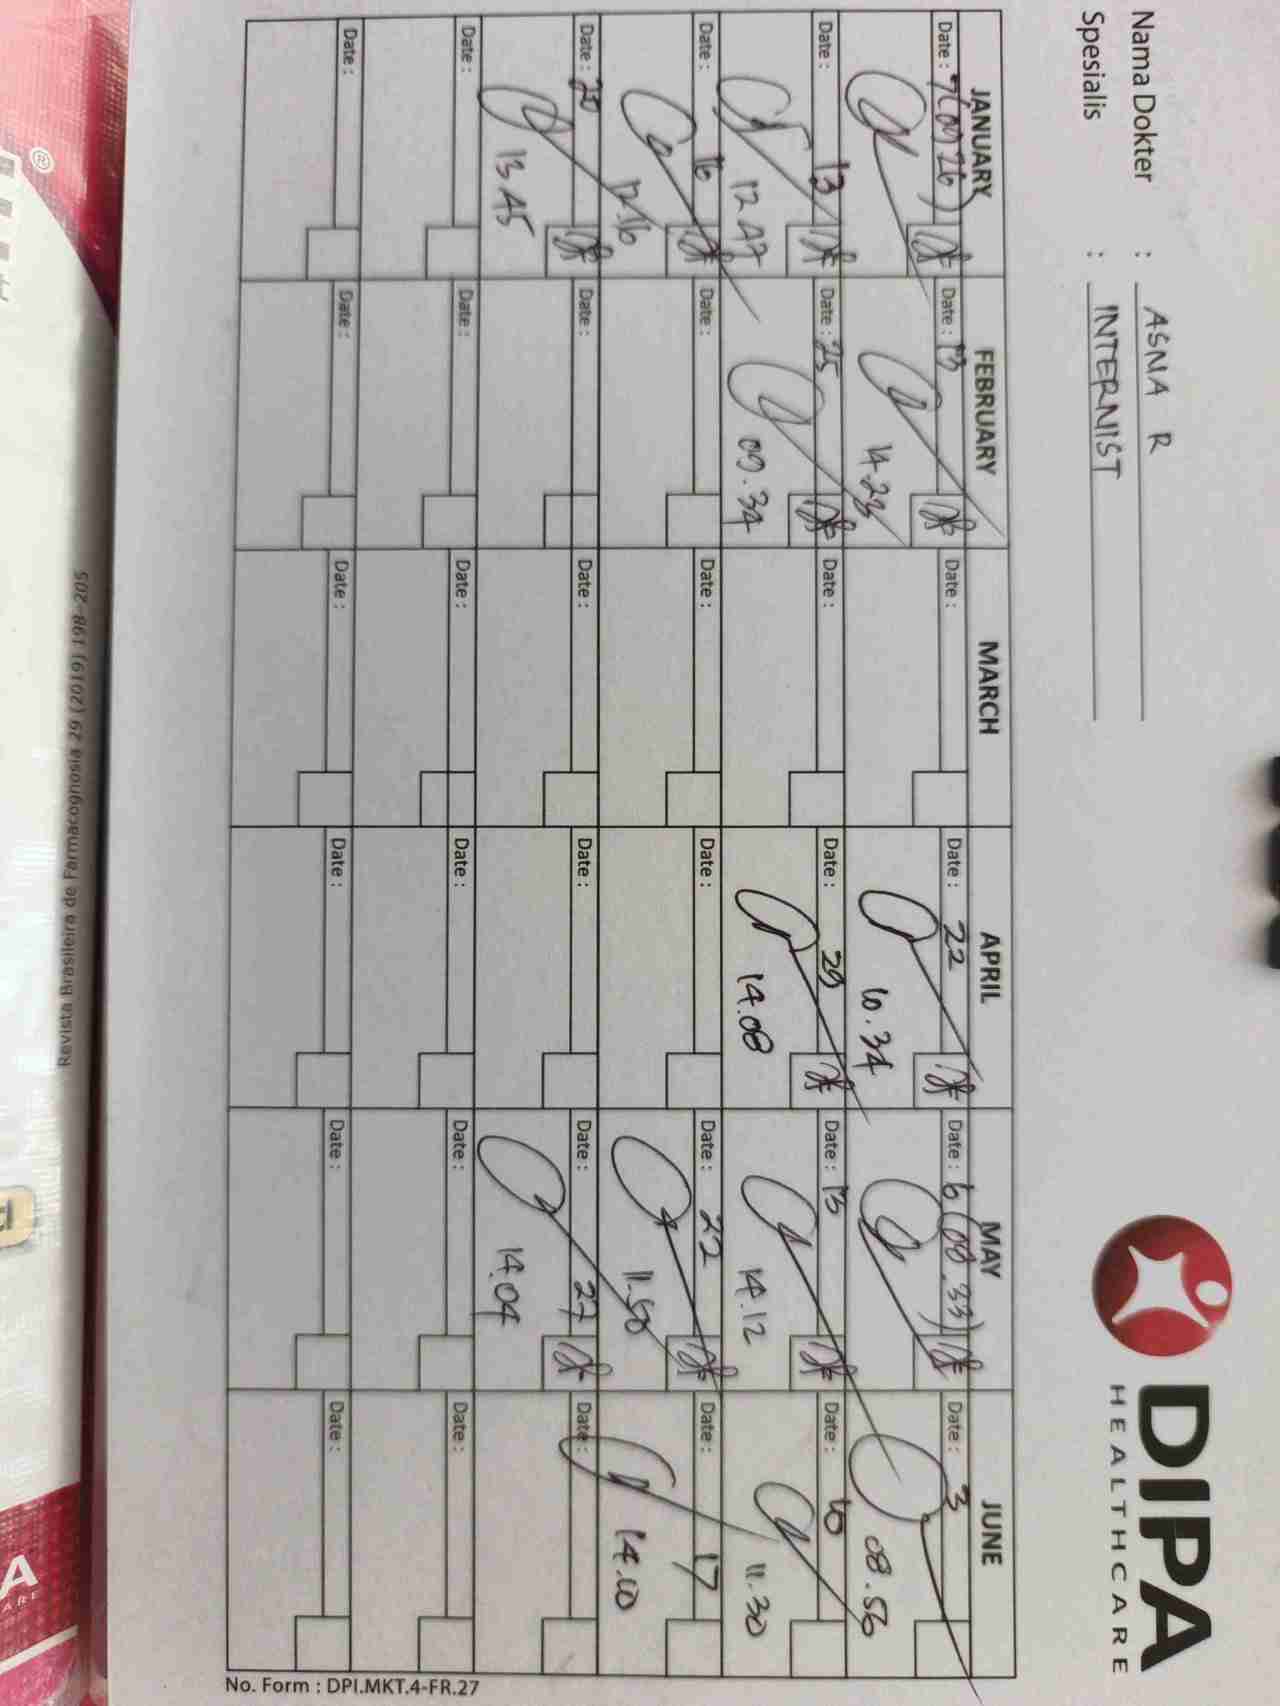 Nama Dokter : ASNA R
Spesialis : INTERNIST
DIPA
HEALTHCARE
JANUARY FEBRUARY MARCH APRIL MAY JUNE
Date : 7 (09 26) Date : 13 Date : Date : 22 Date : 6 (08.33) Date : 3
14.23 10.34 08.56
Date : 13 Date : 25 Date : Date : 29 Date : 13 Date : 10
12.47 09.34 14.08 14.12 11.30
Date : 16 Date : Date : Date : Date : 22 Date : 17
12.16 11.50 14.00
Date : 20 Date : Date : Date : Date : 27 Date :
13.45 14.04
Date : Date : Date : Date : Date : Date :
Date : Date : Date : Date : Date : Date :
No. Form : DPI.MKT.4-FR.27
Revista Brasileira de Farmacognosia 29 (2019) 198-205